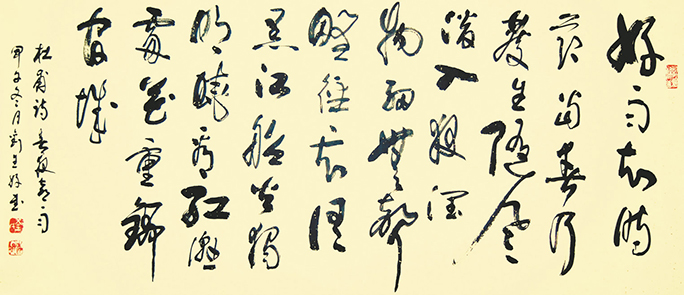 好雨知時
節當春乃
發生隨風
潛入夜潤
物細無聲
野徑雲俱
黑江船火獨
明曉看紅濕
處花重錦
官城
杜甫詩春夜喜雨
甲子冬月劉書